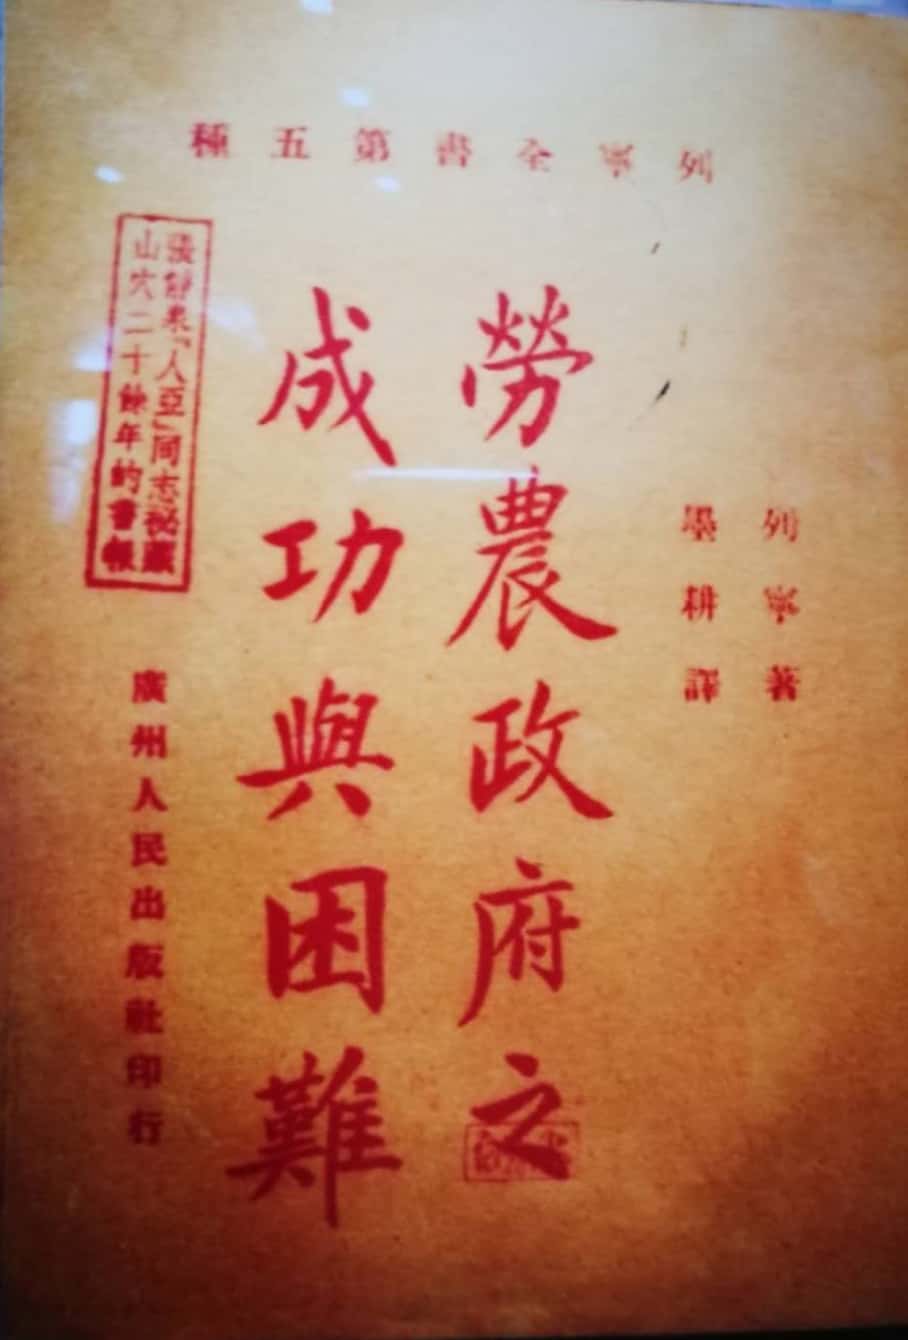 列寧全書第五種
列寧著
墨耕譯
勞農政府之
成功與困難
張靜泉「人亞」同志祕藏
山穴二十餘年的書報
廣州人民出版社印行